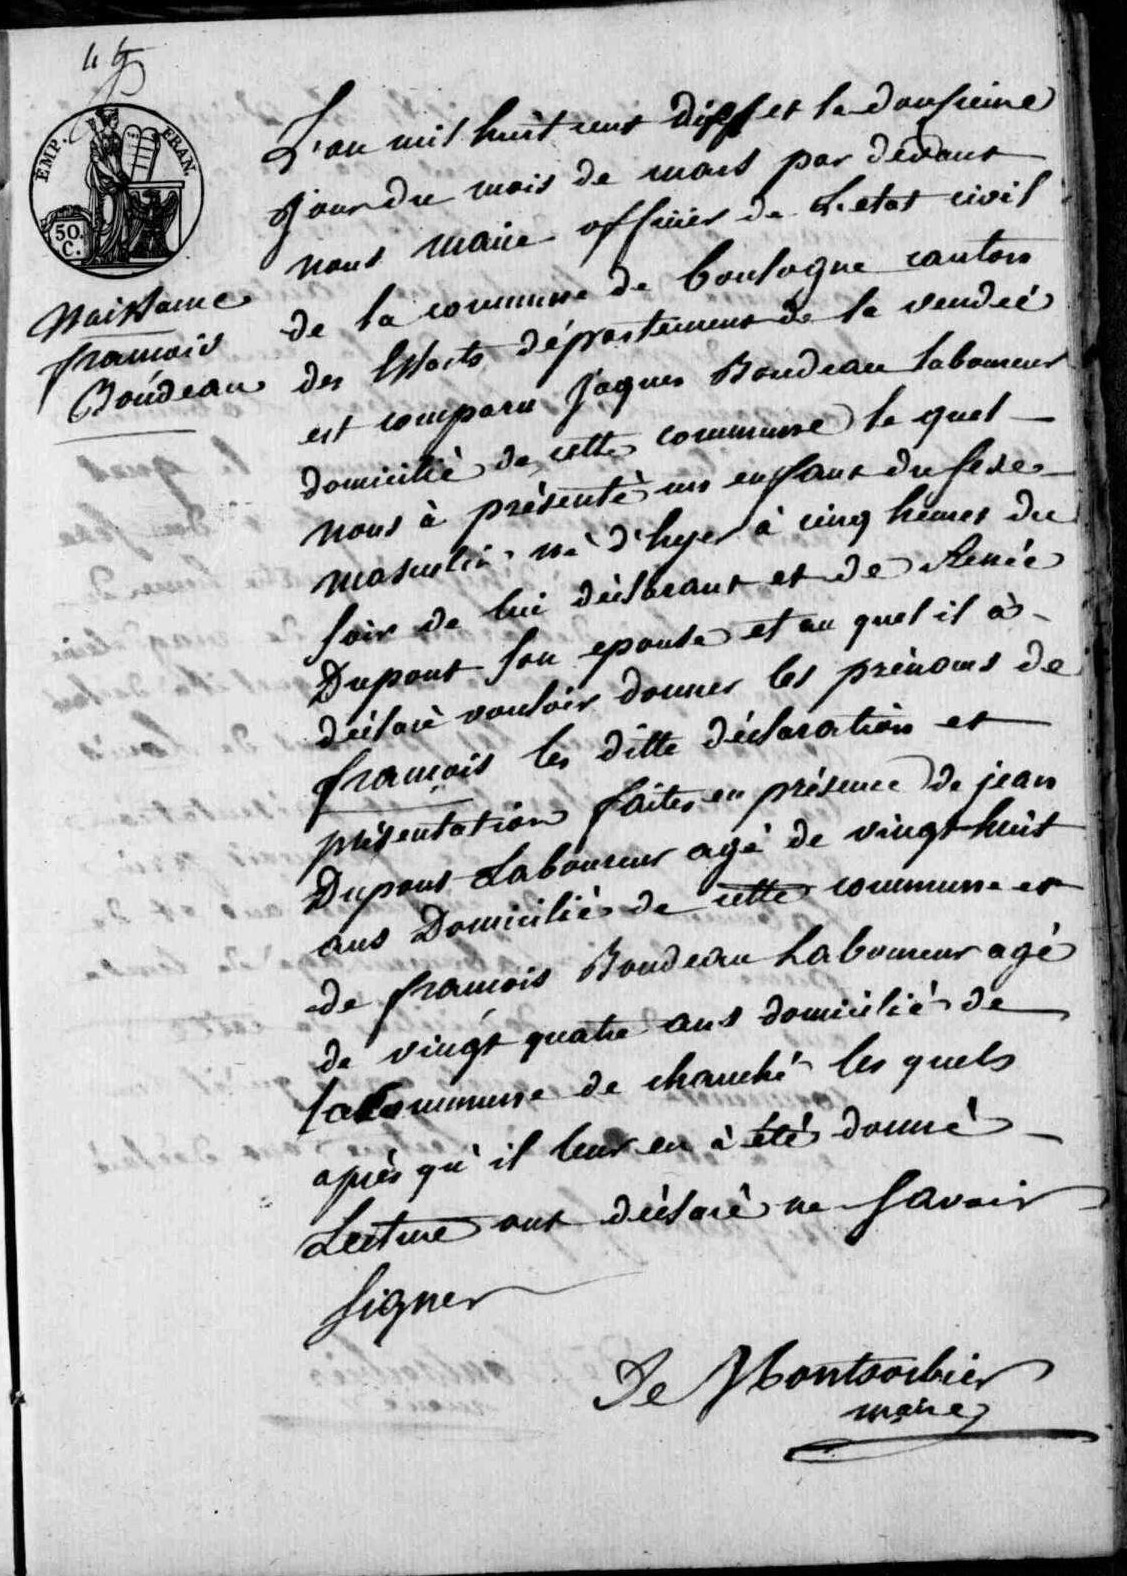 EMP. FRAN.
50. C.
Naissance
françois
Boudeau
L'an mil huit cent dix et le douzieme
jour du mois de mars par devant
nous maire officier de L'etat civil
de la commune de boulogne canton
des Essarts département de la vendée
est comparu jaques Boudeau laboureur
domicilié de cette commune le quel
nous à présenté un enfant du sexe
masculin né d'hyer à cinq heures du
soir de lui déclarant et de Renée
Dupont son epouse et au quel il à
déclaré vouloir donner les prénoms de
françois les ditte déclaration et
présentation faites en présence de jean
Dupont Laboureur agé de vingt huit
ans Domicilié de cette commune et
de françois Boudeau Laboureur agé
de vingt quatre ans domicilié de
la Commune de chauché les quels
après qu'il leur en à été donné
Lecture ont déclaré ne savoir
signer
De Montsorbier
maire